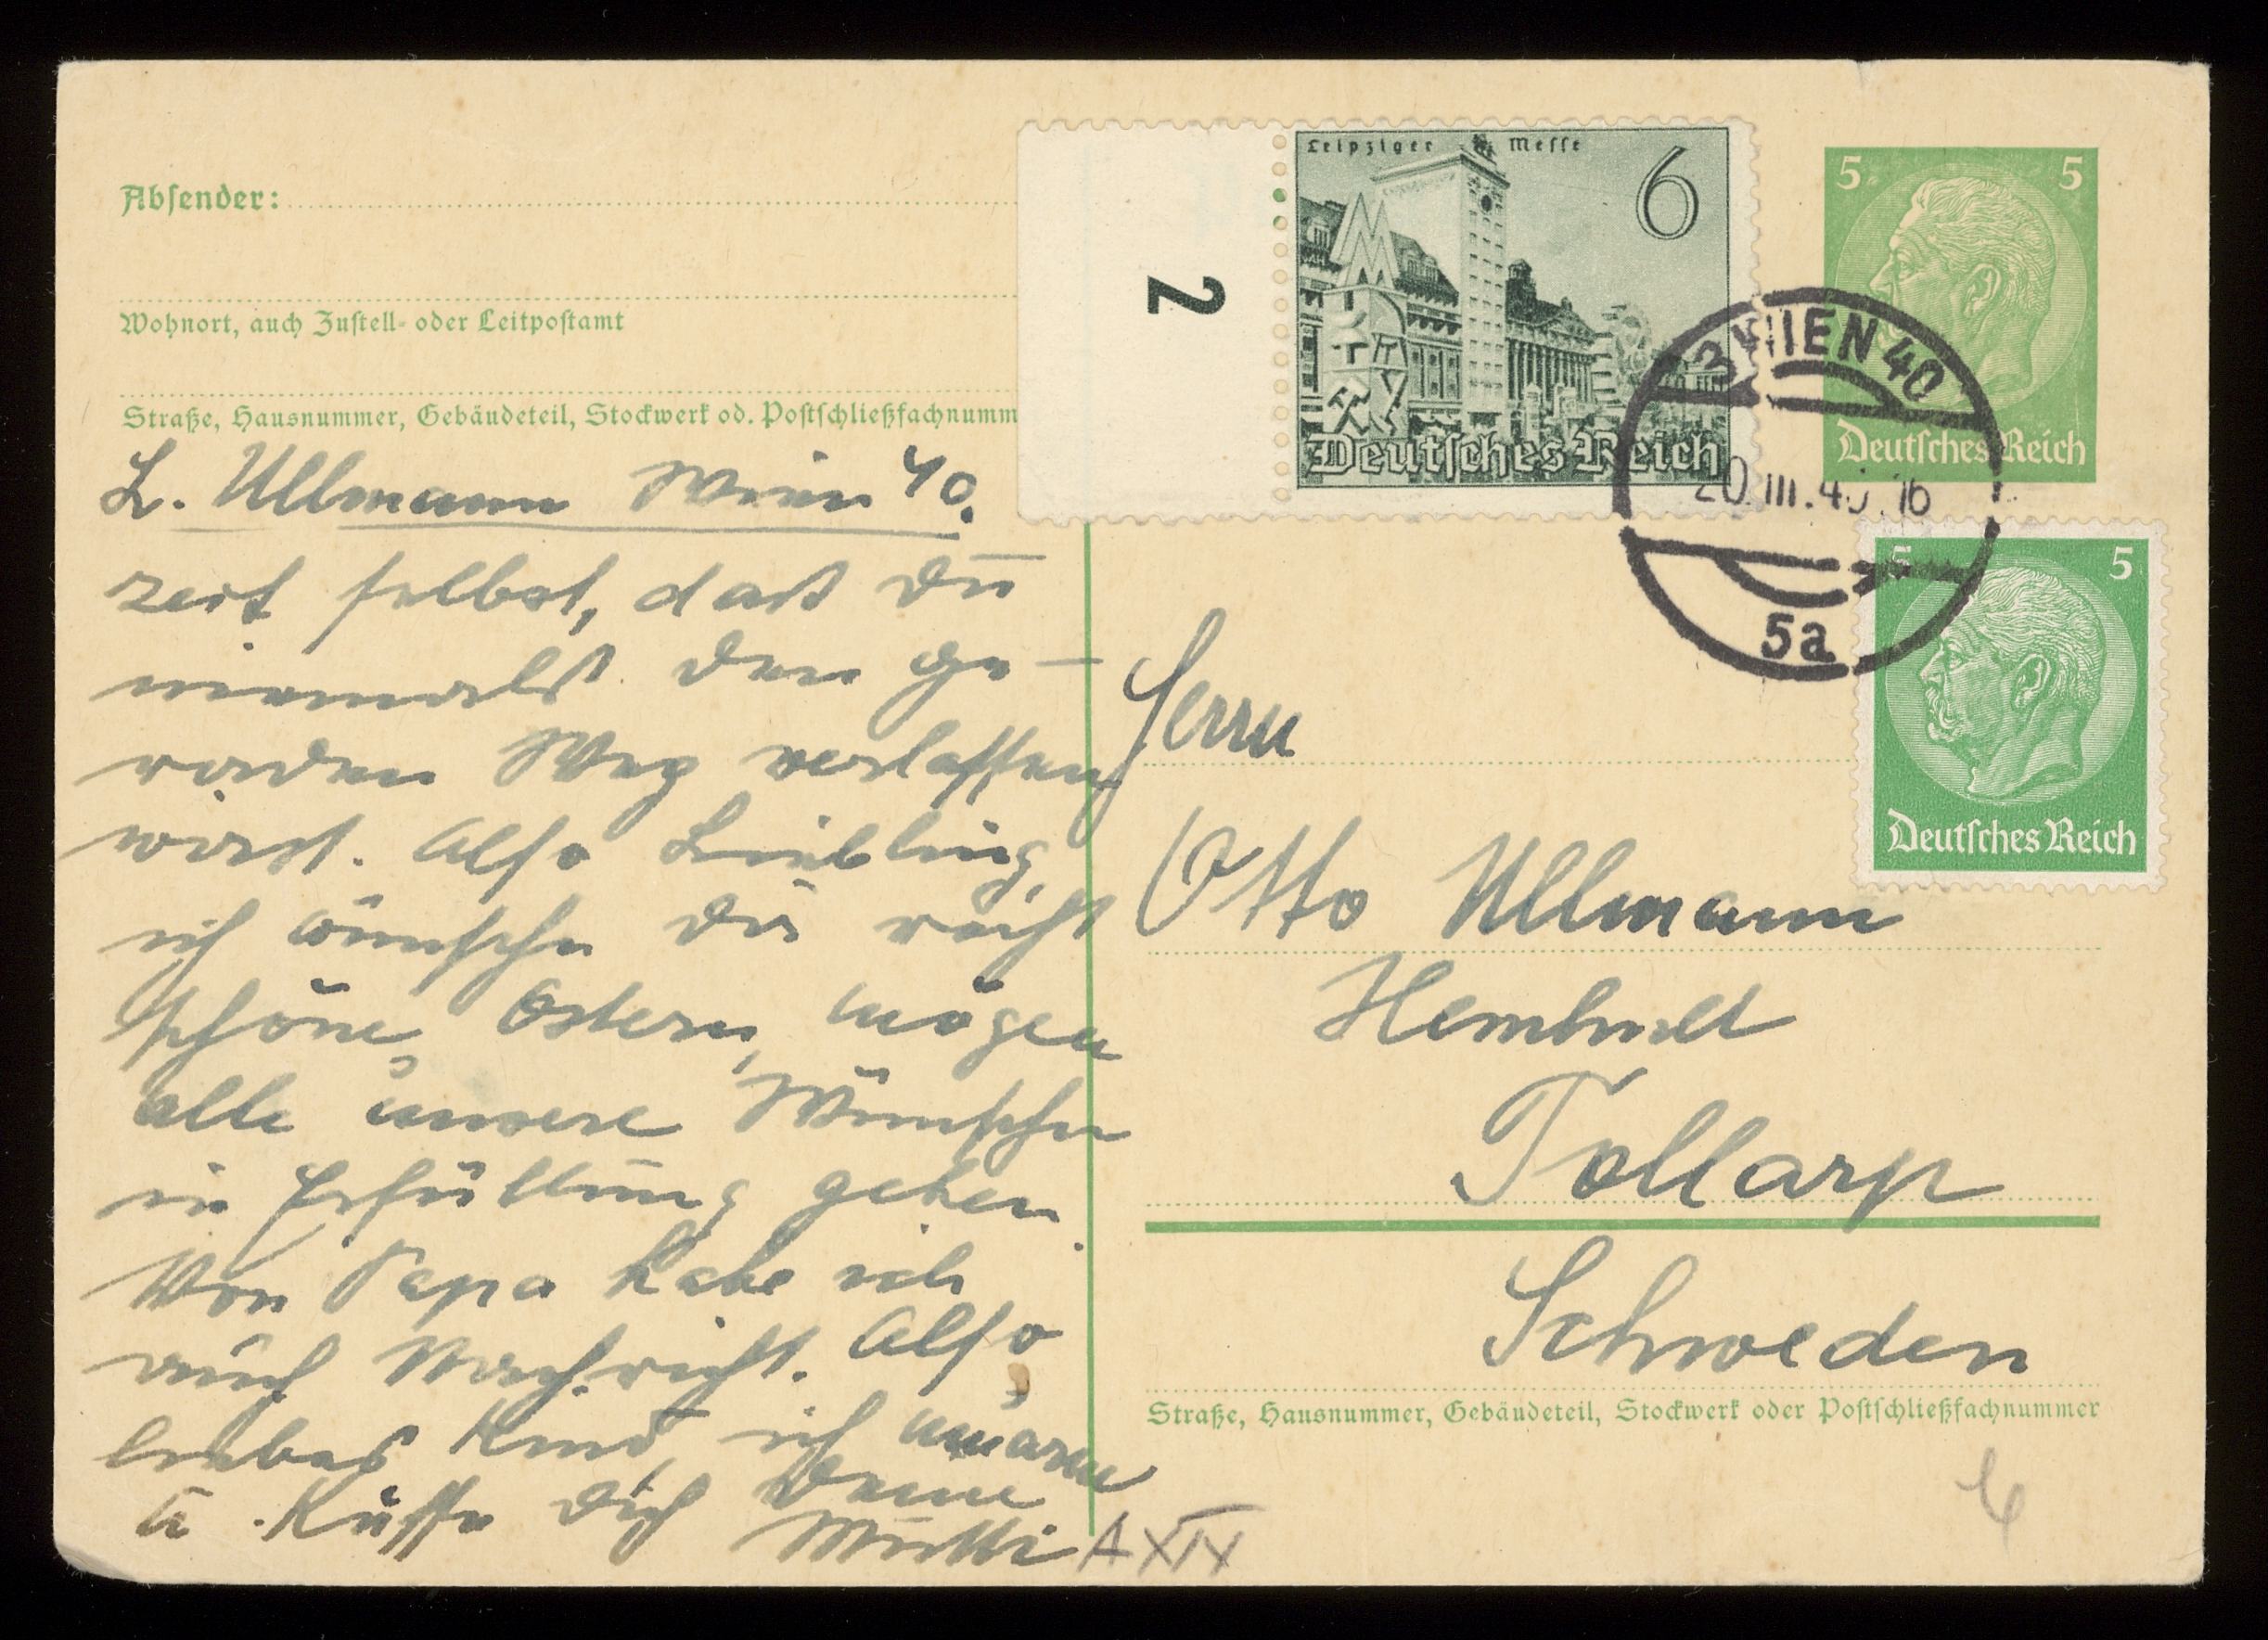 Absender:
Wohnort, auch Zustell- oder Leitpostamt
Straße, Hausnummer, Gebäudeteil, Stockwerk od. Postschließfachnumm
L. Ullmann Wien 40.
zeit selbst, daß Du
niemals den Ge-
raden Weg verlassen
wirst. Also Liebling,
ich wünsche Dir recht
schöne Ostern, mögen
alle unsere Wünsche
in Erfüllung gehen.
Von Papa habe ich
auch Nachricht. Also
liebes Kind, ich umarm
u. Küsse Dich Deine
Mutti
A XIX
Leipziger Messe
6
Deutsches Reich
2
5 5
Deutsches Reich
WIEN 40
20.III.40.16
5a
5 5
Deutsches Reich
Herrn
Otto Ullmann
Tollarp
Schweden
Straße, Hausnummer, Gebäudeteil, Stockwerk oder Postschließfachnummer